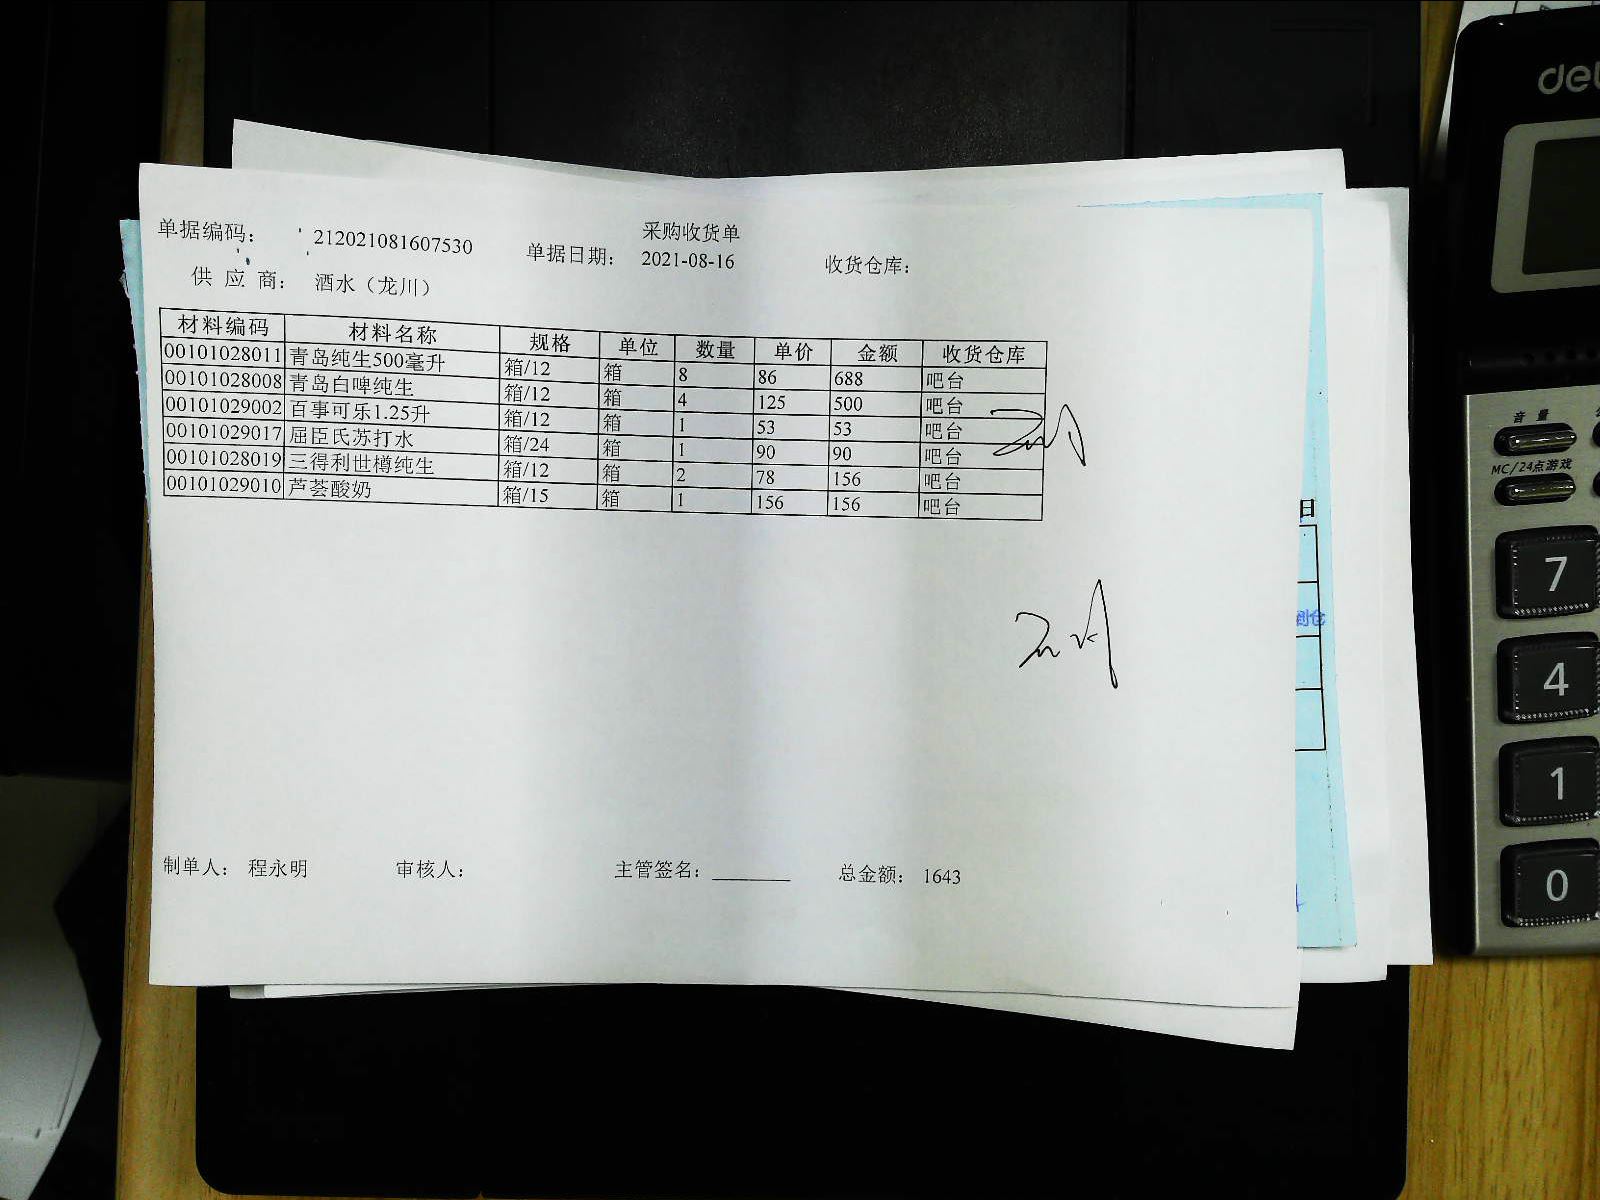 采购收货单
单据编码： 212021081607530 单据日期： 2021-08-16 收货仓库：
供 应 商： 酒水（龙川）
材料编码 材料名称 规格 单位 数量 单价 金额 收货仓库
00101028011 青岛纯生500毫升 箱/12 箱 8 86 688 吧台
00101028008 青岛白啤纯生 箱/12 箱 4 125 500 吧台
00101029002 百事可乐1.25升 箱/12 箱 1 53 53 吧台
00101029017 屈臣氏苏打水 箱/24 箱 1 90 90 吧台
00101028019 三得利世樽纯生 箱/12 箱 2 78 156 吧台
00101029010 芦荟酸奶 箱/15 箱 1 156 156 吧台
制单人： 程永明 审核人： 主管签名： 总金额： 1643
日
到仓
音量
MC/24点游戏
7
4
1
0